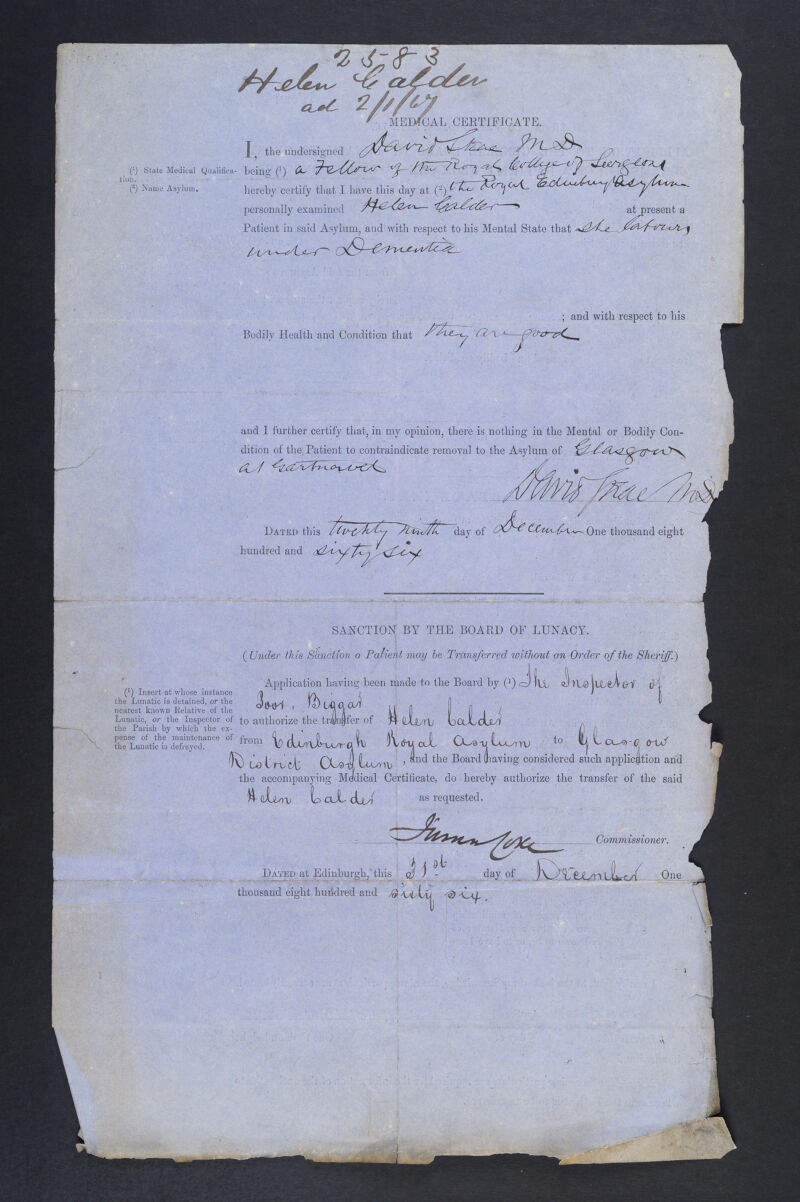 2583
Helen Calder
ad 2/1/67
MEDICAL CERTIFICATE.
I, the undersigned David Skae M D
(¹) State Medical Qualifica-
tion.
(²) Name Asylum.
being (¹) a Fellow of the Royal College of Surgeons
hereby certify that I have this day at (²) the Royal Edinburgh Asylum
personally examined Helen Calder at present a
Patient in said Asylum, and with respect to his Mental State that she labours
under Dementia
; and with respect to his
Bodily Health and Condition that they are good
and I further certify that, in my opinion, there is nothing in the Mental or Bodily Con-
dition of the Patient to contraindicate removal to the Asylum of Glasgow
at Gartnavel
David Skae M D
DATED this twenty ninth day of December One thousand eight
hundred and sixty six
SANCTION BY THE BOARD OF LUNACY.
(Under this Sanction a Patient may be Transferred without an Order of the Sheriff.)
(¹) Insert at whose instance
the Lunatic is detained, or the
nearest known Relative of the
Lunatic, or the Inspector of
the Parish by which the ex-
pense of the maintenance of
the Lunatic is defrayed.
Application having been made to the Board by (¹) The Inspector of
Poor, Biggar
to authorize the transfer of Helen Calder
from Edinburgh Royal Asylum to Glasgow
District Asylum, and the Board having considered such application and
the accompanying Medical Certificate, do hereby authorize the transfer of the said
Helen Calder as requested.
James Coxe Commissioner.
DATED at Edinburgh, this 31st day of December One
thousand eight hundred and sixty six.